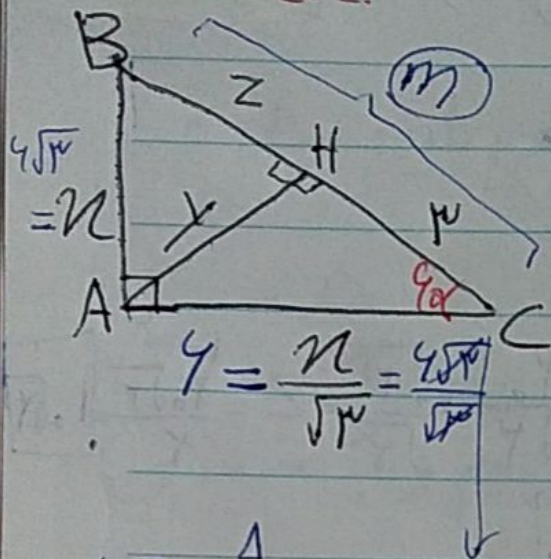 B
z
m
۶√۳
H
= x
y
۳
۶۰
A
C
۶ = x/√۳ = ۶√۳/√۳
A